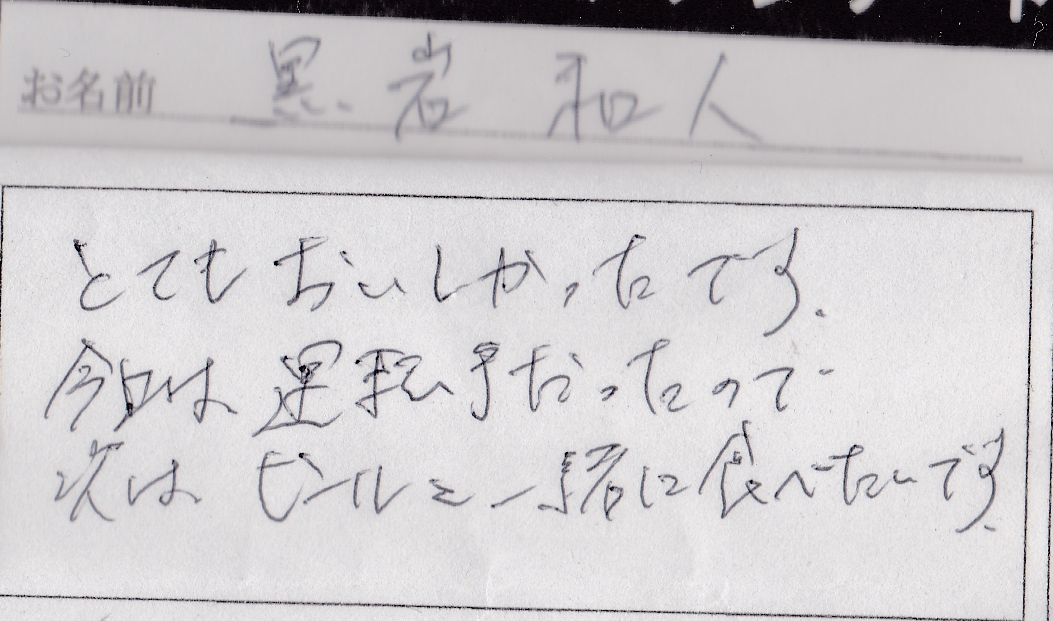 お名前 黒岩 和人
とてもおいしかったです.
今日は運転手だったので
次はビールと一緒に食べたいです.